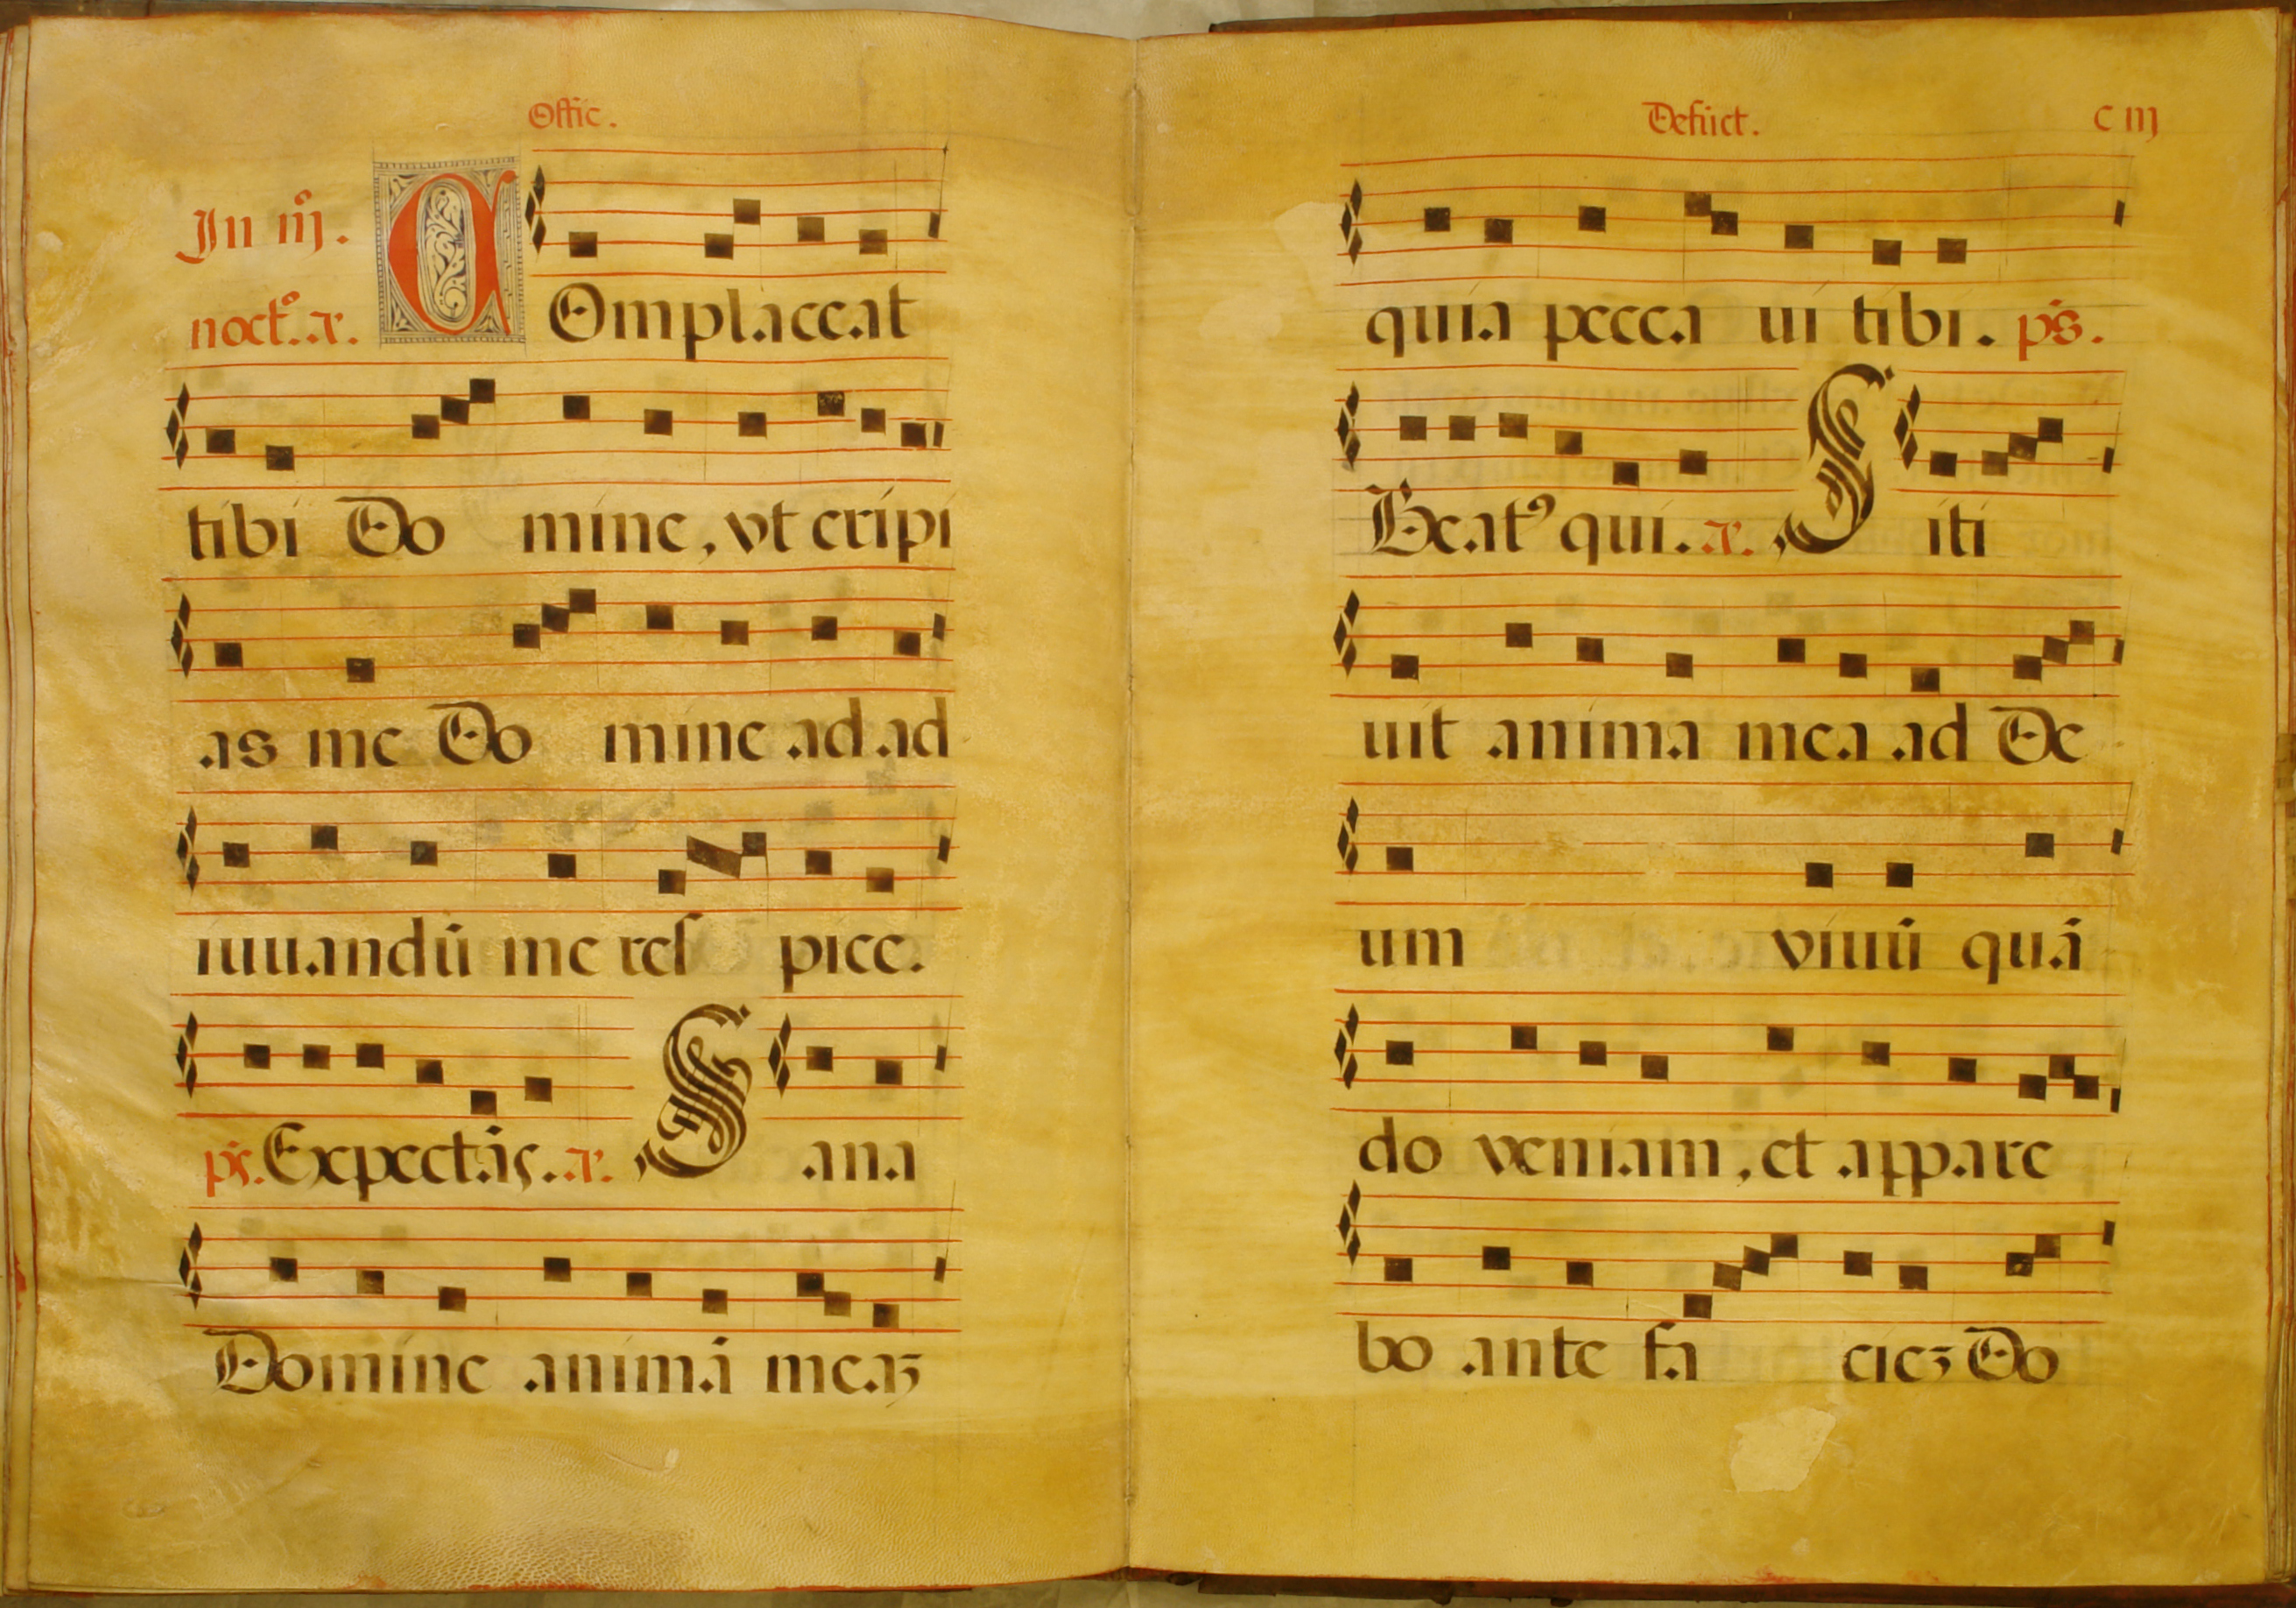 Offic.
In iij.
noct.º a.
COmplaceat
tibi Do mine, vt eripi
as me Do mine ad ad
iuuandū me res pice.
ps. Expectās. a. Sana
Domine animā meaz
Defūct. C iij
quia pecca ui tibi. ps.
Beat⁹ qui. a. Siti
uit anima mea ad De
um viuū quā
do veniam, et appare
bo ante fa ciez Do